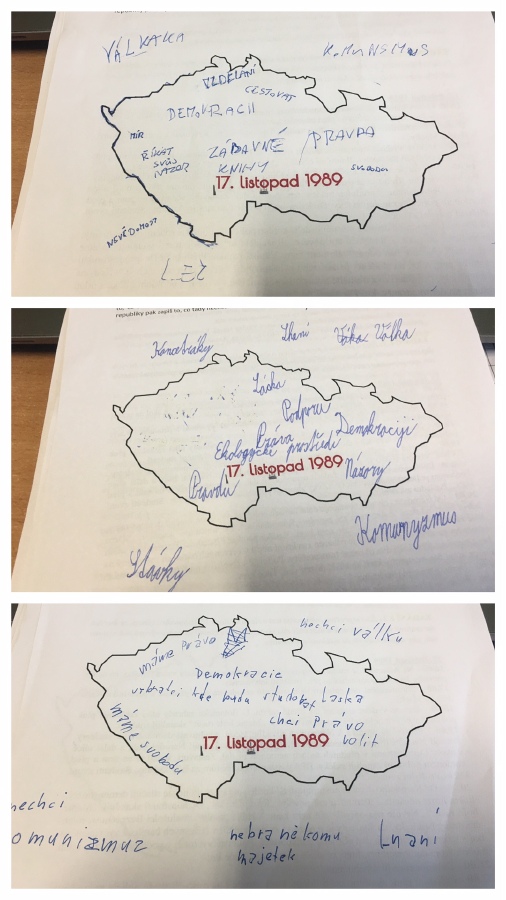 VÁLKA
KOMUNSMUS
VZDĚLANÍ
CESTOVAT
DEMOKRACII
MÍR
ŘÍKAT
SVŮJ
NÁZOR
ZÁBAVNÉ
KNIHY
PRAVDA
SVOBODA
17. listopad 1989
NEVĚDOMOST
LEŽ
republiky pak zapiš to, co
Koncetráky
Lhaní
Válka
Láska
Podporu
Práva
Demokraciji
Ekologické prostředí
17. listopad 1989
Názory
Pravdu
Komunyzmus
Stávky
nechci válku
máme Právo
Demokracie
vybrat si kde budu studovat
Laska
chci Právo
volit
máme svobodu
17. listopad 1989
nechci
omunizmuz
nebra někomu
majetek
Lhaní